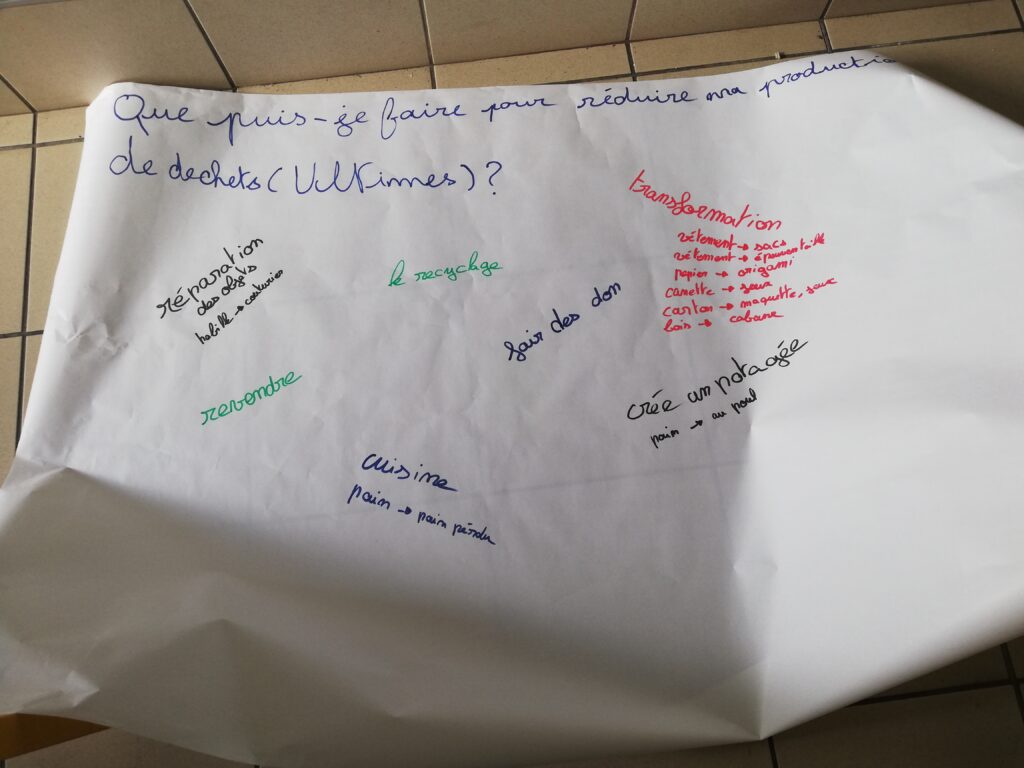 Que puis-je faire pour réduire ma productio
de dechets (Ultimes) ?
transformation
vêtement → sacs
vêtement → épouventaille
papier → origami
canette →
carton → maquette,
bois → cabane
réparation
des objets
habille → couturier
le recyclage
fair des don
revendre
crée un potagée
pain → au poul
cuisine
pain → pain pérdu